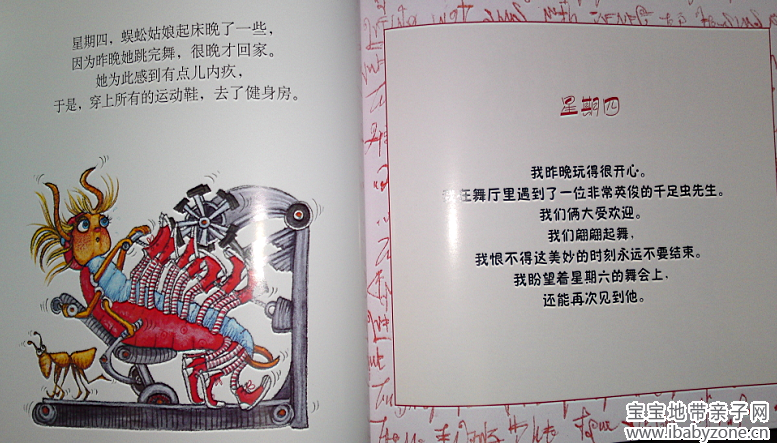 星期四，蜈蚣姑娘起床晚了一些，
因为昨晚她跳完舞，很晚才回家。
她为此感到有点儿内疚，
于是，穿上所有的运动鞋，去了健身房。
星期四
我昨晚玩得很开心。
在舞厅里遇到了一位非常英俊的千足虫先生。
我们俩大受欢迎。
我们翩翩起舞，
我恨不得这美妙的时刻永远不要结束。
我盼望着星期六的舞会上，
还能再次见到他。
宝宝地带亲子网
www.ibabyzone.cn